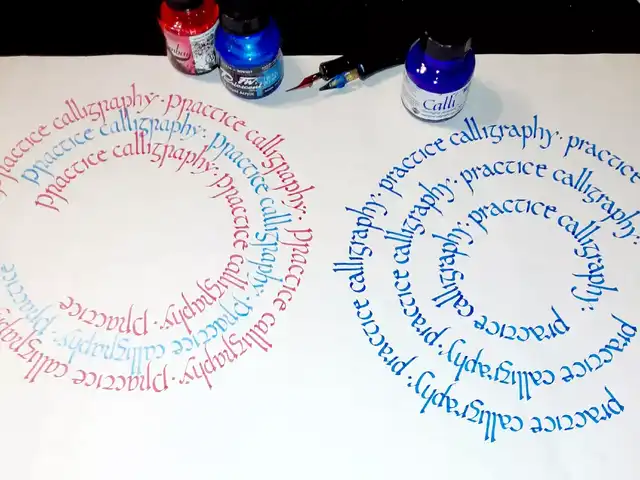 Calli
practice calligraphy· practice calligraphy· practice calligraphy· practice
practice calligraphy· practice calligraphy· practice calligraphy· practice
practice calligraphy· practice calligraphy· practice
practice calligraphy· practice calligraphy· practice calligraphy· practice
practice calligraphy· practice calligraphy· practice calligraphy·
practice calligraphy· practice calligraphy·